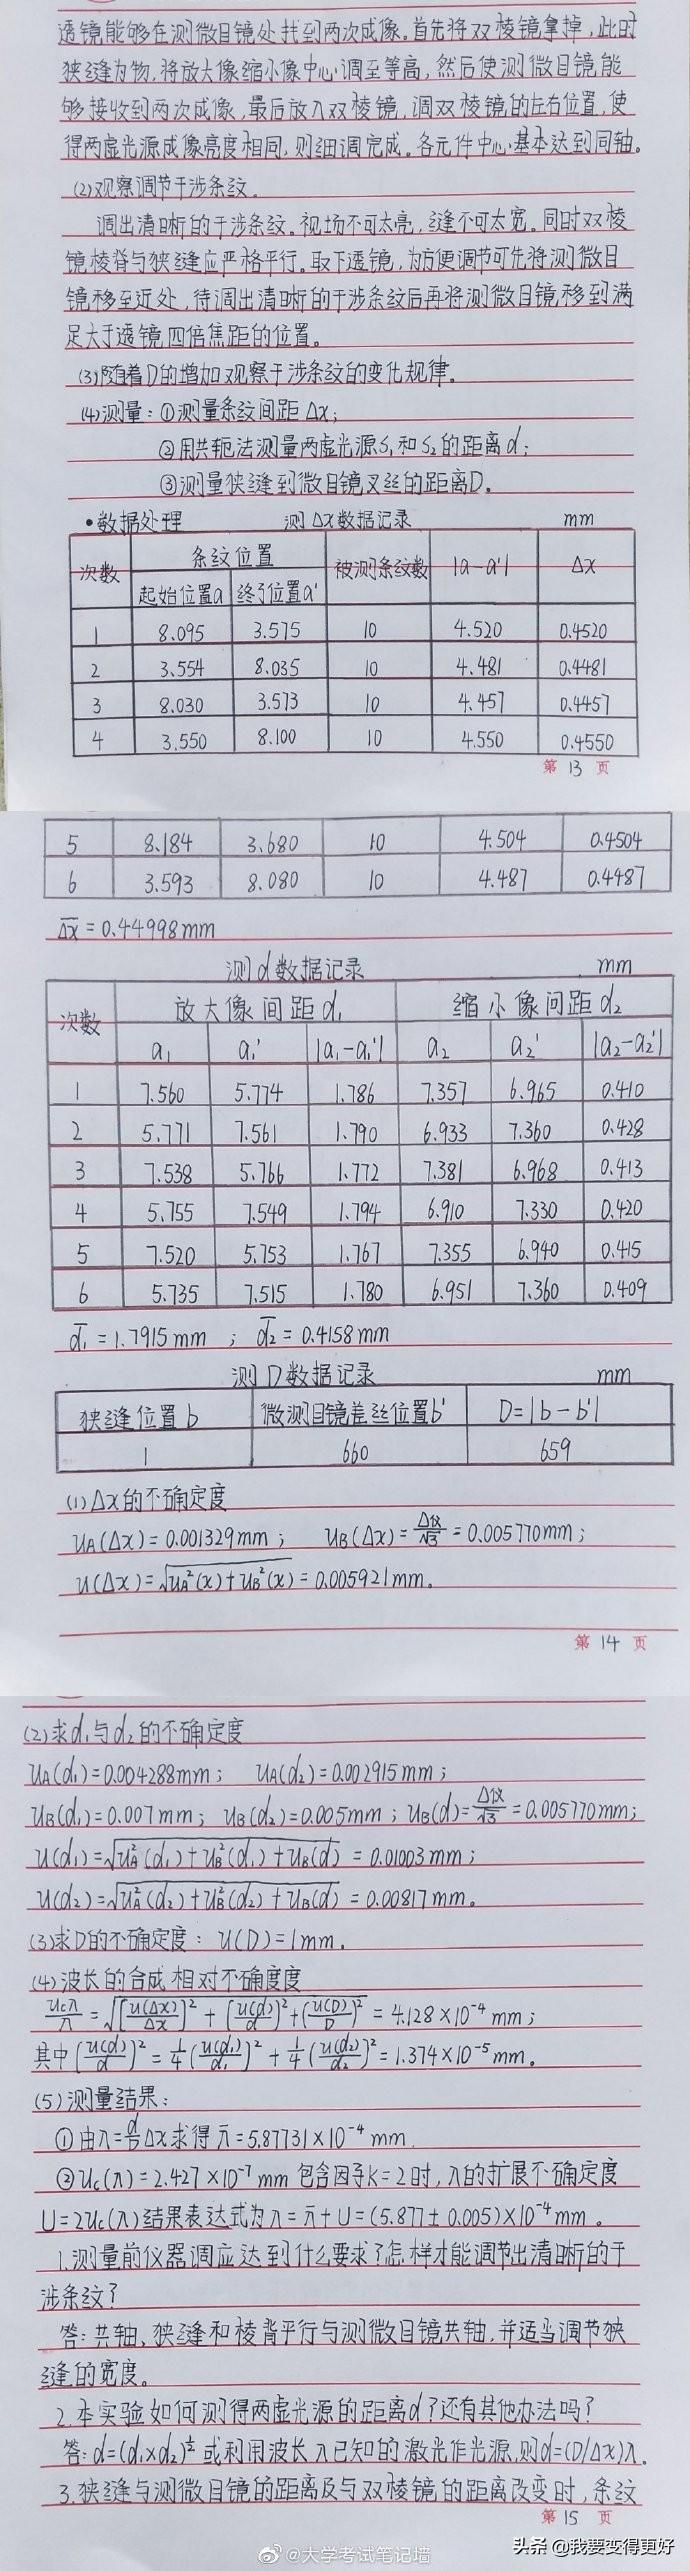 透镜能够在测微目镜处找到两次成像。首先将双棱镜拿掉，此时
狭缝为物，将放大像缩小像中心调至等高，然后使测微目镜能
够接收到两次成像，最后放入双棱镜，调双棱镜的左右位置，使
得两虚光源成像亮度相同，则细调完成。各元件中心基本达到同轴。
(2)观察调节干涉条纹。
调出清晰的干涉条纹。视场不可太亮，缝不可太宽。同时双棱
镜棱脊与狭缝应严格平行。取下透镜，为方便调节可先将测微目
镜移至近处，待调出清晰的干涉条纹后再将测微目镜移到满
足大于透镜四倍焦距的位置。
(3)随着D的增加观察干涉条纹的变化规律。
(4)测量：①测量条纹间距Δx；
②用共轭法测量两虚光源S₁和S₂的距离d；
③测量狭缝到微目镜叉丝的距离D。
•数据处理 测Δx数据记录 mm
次数 条纹位置 被测条纹数 |a-a'| Δx
起始位置a 终了位置a'
1 8.095 3.575 10 4.520 0.4520
2 3.554 8.035 10 4.481 0.4481
3 8.030 3.573 10 4.457 0.4457
4 3.550 8.100 10 4.550 0.4550
第 13 页
5 8.184 3.680 10 4.504 0.4504
6 3.593 8.080 10 4.487 0.4487
Δx̄=0.44998mm
测d数据记录 mm
次数 放大像间距d₁ 缩小像间距d₂
a₁ a₁' |a₁-a₁'| a₂ a₂' |a₂-a₂'|
1 7.560 5.774 1.786 7.357 6.965 0.410
2 5.771 7.561 1.790 6.933 7.360 0.428
3 7.538 5.766 1.772 7.381 6.968 0.413
4 5.755 7.549 1.794 6.910 7.330 0.420
5 7.520 5.753 1.767 7.355 6.940 0.415
6 5.735 7.515 1.780 6.951 7.360 0.409
d̄₁=1.7915mm ； d̄₂=0.4158mm
测D数据记录 mm
狭缝位置b 微测目镜差丝位置b' D=|b-b'|
1 660 659
(1)Δx的不确定度
uA(Δx)=0.001329mm； uB(Δx)=Δ仪/√3=0.005770mm；
u(Δx)=√(uA²(x)+uB²(x))=0.005921mm。
第 14 页
(2)求d₁与d₂的不确定度
uA(d₁)=0.004288mm； uA(d₂)=0.002915mm；
uB(d₁)=0.007mm；uB(d₂)=0.005mm；uB(d)=Δ仪/√3=0.005770mm；
u(d₁)=√(uA²(d₁)+uB²(d₁)+uB(d))=0.01003mm；
u(d₂)=√(uA²(d₂)+uB²(d₂)+uB(d))=0.00817mm。
(3)求D的不确定度：u(D)=1mm。
(4)波长的合成相对不确度度
ucλ/λ=√([u(Δx)/Δx]²+[u(d)/d]²+(u(D)/D)²)=4.128×10⁻⁴mm；
其中(u(d)/d)²=¼(u(d₁)/d₁)²+¼(u(d₂)/d₂)²=1.374×10⁻⁵mm。
(5)测量结果：
①由λ=d/DΔx求得λ̄=5.87731×10⁻⁴mm.
②uc(λ)=2.427×10⁻⁷mm包含因子K=2时，λ的扩展不确定度
U=2uc(λ)结果表达式为λ=λ̄+U=(5.877±0.005)×10⁻⁴mm。
1.测量前仪器调应达到什么要求？怎样才能调节出清晰的干
涉条纹？
答：共轴、狭缝和棱背平行与测微目镜共轴，并适当调节狭
缝的宽度。
2.本实验如何测得两虚光源的距离d？还有其他办法吗？
答：d=(d₁×d₂)^½或利用波长λ已知的激光作光源，则d=(D/Δx)λ。
3.狭缝与测微目镜的距离及与双棱镜的距离改变时，条纹
第 15 页
@大学考试笔记墙
头条 @我要变得更好